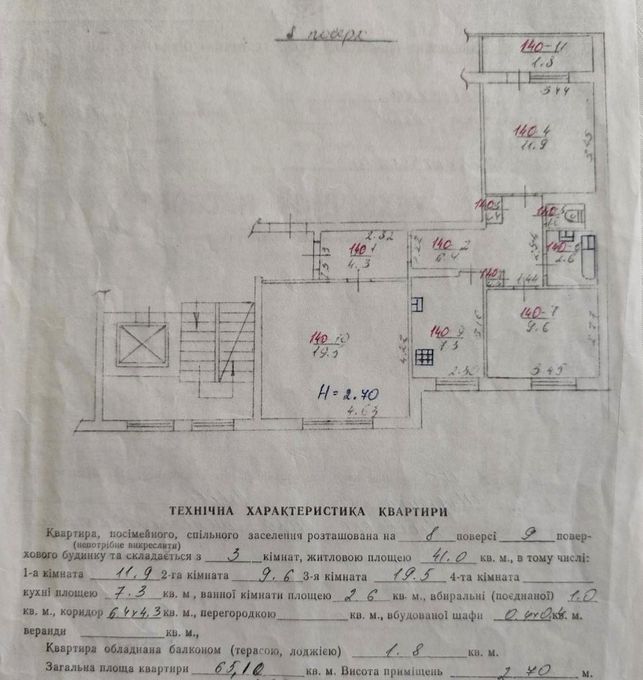 8 поверх
140-11
1.8
3.44
140-4
11.9
3.45
140-5
2.32
140-1
4.3
140-2
6.4
2.6
1.44
140-10
19.5
4.22
140-9
7.3
3.16
140-7
9.6
2.77
H = 2.70
4.63
2.30
3.45
ТЕХНІЧНА ХАРАКТЕРИСТИКА КВАРТИРИ
Квартира, посімейного, спільного заселення розташована на 8 поверсі 9 повер-
(непотрібне викреслити)
хового будинку та складається з 3 кімнат, житловою площею 41.0 кв. м., в тому числі:
1-а кімната 11.9 2-га кімната 9.6 3-я кімната 19.5 4-та кімната
кухні площею 7.3 кв. м, ванної кімнати площею 2.6 кв. м., вбиральні (поєднаної) 1.0
кв. м., коридор 6.4+4.3 кв. м., перегородкою кв. м., вбудованої шафи 0.4+0.4 кв. м.
веранди кв. м.,
Квартира обладнана балконом (терасою, лоджією) 1.8 кв. м.
Загальна площа квартири 65,10 кв. м. Висота приміщень 2.70 м.